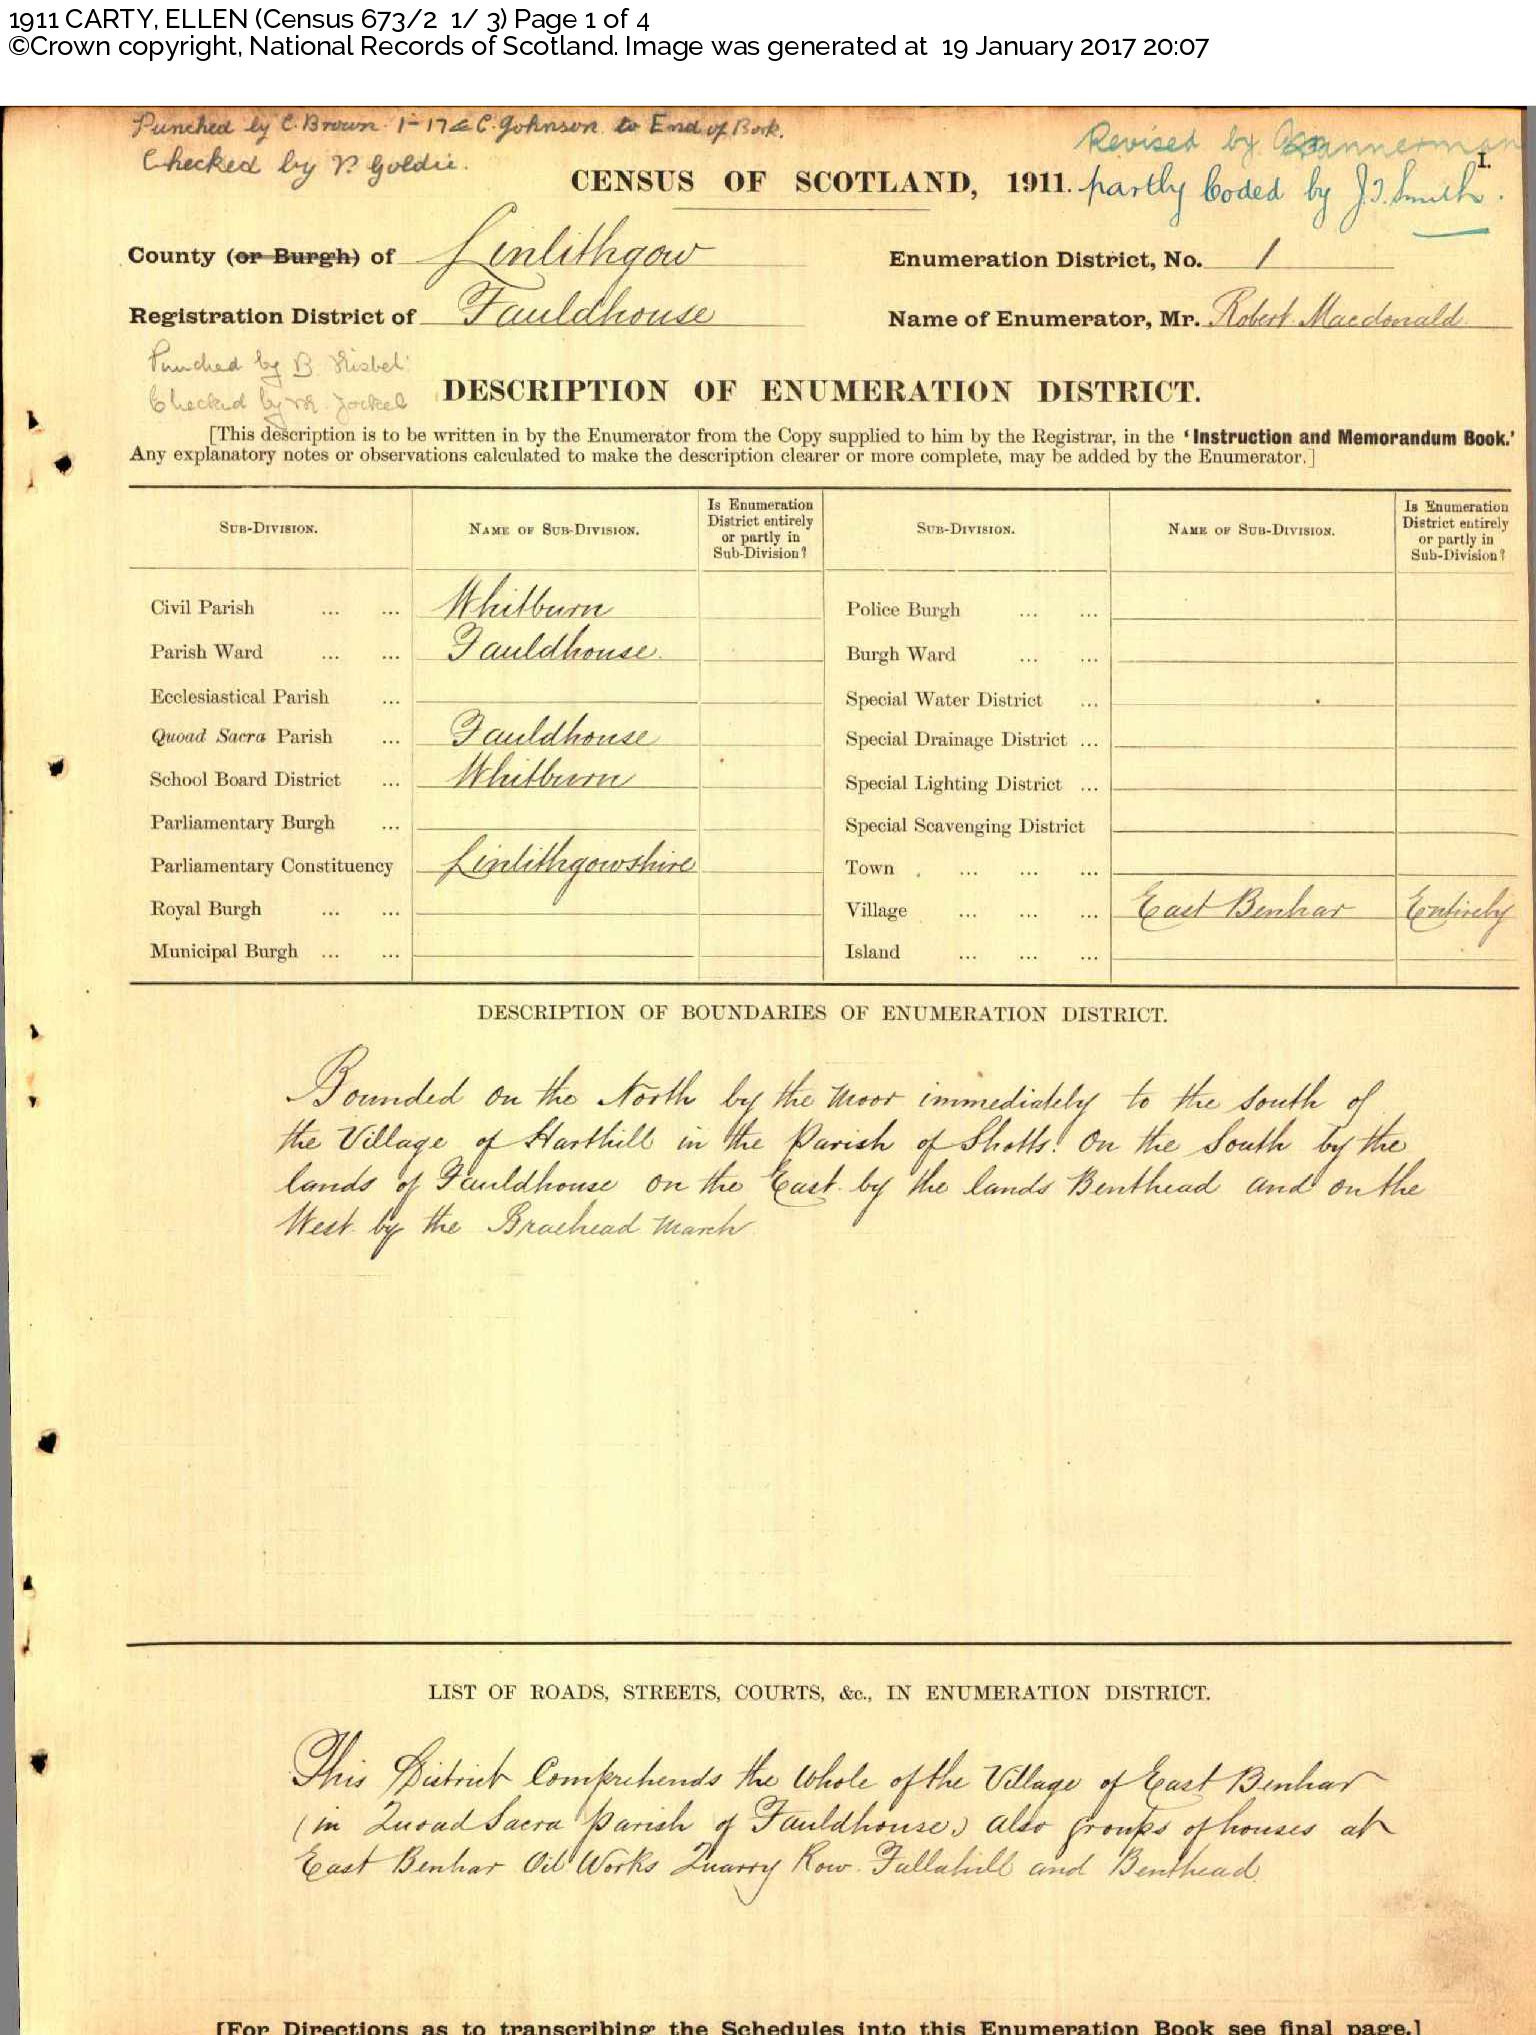 1911 CARTY, ELLEN (Census 673/2 1/ 3) Page 1 of 4
©Crown copyright, National Records of Scotland. Image was generated at 19 January 2017 20:07
Punched by C. Brown 1-17 & C. Johnson to End of Book.
Checked by Goldie.
Revised by Bannerman
I.
CENSUS OF SCOTLAND, 1911.
partly Coded by J.T. Smith.
County (or Burgh) of Linlithgow
Enumeration District, No. 1
Registration District of Fauldhouse
Name of Enumerator, Mr. Robert Macdonald
Punched by B.
Checked by
DESCRIPTION OF ENUMERATION DISTRICT.
[This description is to be written in by the Enumerator from the Copy supplied to him by the Registrar, in the 'Instruction and Memorandum Book.'
Any explanatory notes or observations calculated to make the description clearer or more complete, may be added by the Enumerator.]
SUB-DIVISION. NAME OF SUB-DIVISION. Is Enumeration District entirely or partly in Sub-Division? SUB-DIVISION. NAME OF SUB-DIVISION. Is Enumeration District entirely or partly in Sub-Division?
Civil Parish ... ... Whitburn Police Burgh ... ...
Parish Ward ... ... Fauldhouse. Burgh Ward ... ...
Ecclesiastical Parish ... Special Water District ...
Quoad Sacra Parish ... Fauldhouse Special Drainage District ...
School Board District ... Whitburn Special Lighting District ...
Parliamentary Burgh ... Special Scavenging District
Parliamentary Constituency Linlithgowshire Town ... ... ...
Royal Burgh ... ... Village ... ... ... East Benhar Entirely
Municipal Burgh ... ... Island ... ... ...
DESCRIPTION OF BOUNDARIES OF ENUMERATION DISTRICT.
Bounded on the North by the Moor immediately to the South of
the Village of Harthill in the Parish of Shotts. On the South by the
lands of Fauldhouse on the East by the lands Benthead and on the
West by the Braehead March
LIST OF ROADS, STREETS, COURTS, &c., IN ENUMERATION DISTRICT.
This District Comprehends the whole of the Village of East Benhar
(in Quoad Sacra Parish of Fauldhouse,) also groups of houses at
East Benhar Oil Works Quarry Row. Fallahill and Benthead
[For Directions as to transcribing the Schedules into this Enumeration Book see final page.]